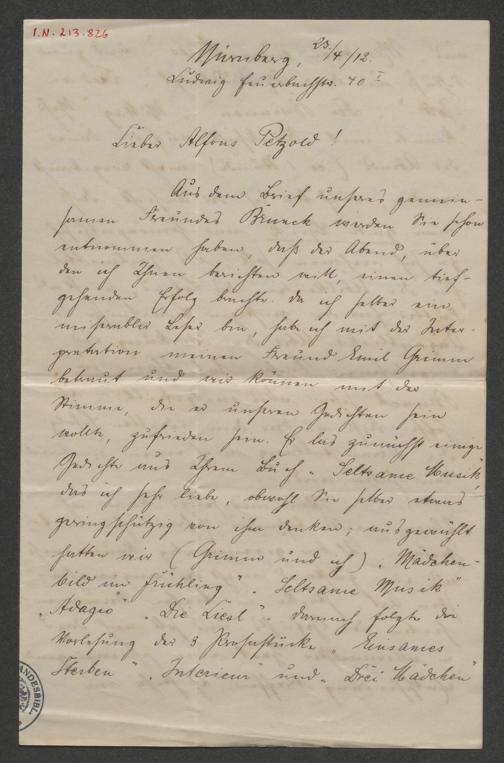 I.N. 213.826
Nürnberg, 23/4/12.
Ludwig Feuerbachstr. 70 I
Lieber Alfons Petzold!
Aus dem Brief unseres gemein-
samen Freundes Bruneck werden Sie schon
entnommen haben, daß der Abend, über
den ich Ihnen berichten will, einen tief-
gehenden Erfolg brachte. Da ich selber ein
miserabler Leser bin, habe ich mit der Inter-
pretation meinen Freund Emil Grimm
betraut und wir können mit der
Stimme, die er unseren Gedichten sein
wollte, zufrieden sein. Er las zunächst einige
Gedichte aus Ihrem Buch „Seltsame Musik"
das ich sehr liebe, obwohl Sie selber etwas
geringschätzig von ihm denken; ausgewählt
hatten wir (Grimm und ich) „Mädchen-
bild im Frühling" „Seltsame Musik"
„Adagio" „Die Liesl" darnach folgte die
Vorlesung der 3 Prosastücke „Einsames
Sterben" „Interieur" und „Drei Mädchen"
ANDESBIBL.